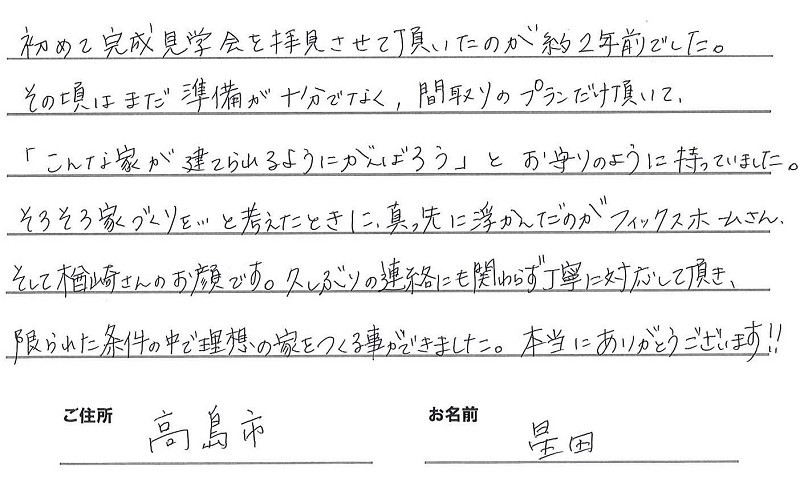 初めて完成見学会を拝見させて頂いたのが約2年前でした。
その頃はまだ準備が十分でなく、間取りのプランだけ頂いて、
「こんな家が建てられるようにがんばろう」とお守りのように持っていました。
そろそろ家づくりを…と考えたときに、真っ先に浮かんだのがフィックスホームさん、
そして楢崎さんのお顔です。久しぶりの連絡にも関わらず丁寧に対応して頂き、
限られた条件の中で理想の家をつくる事ができました。本当にありがとうございます!!
ご住所 高島市 お名前 星田